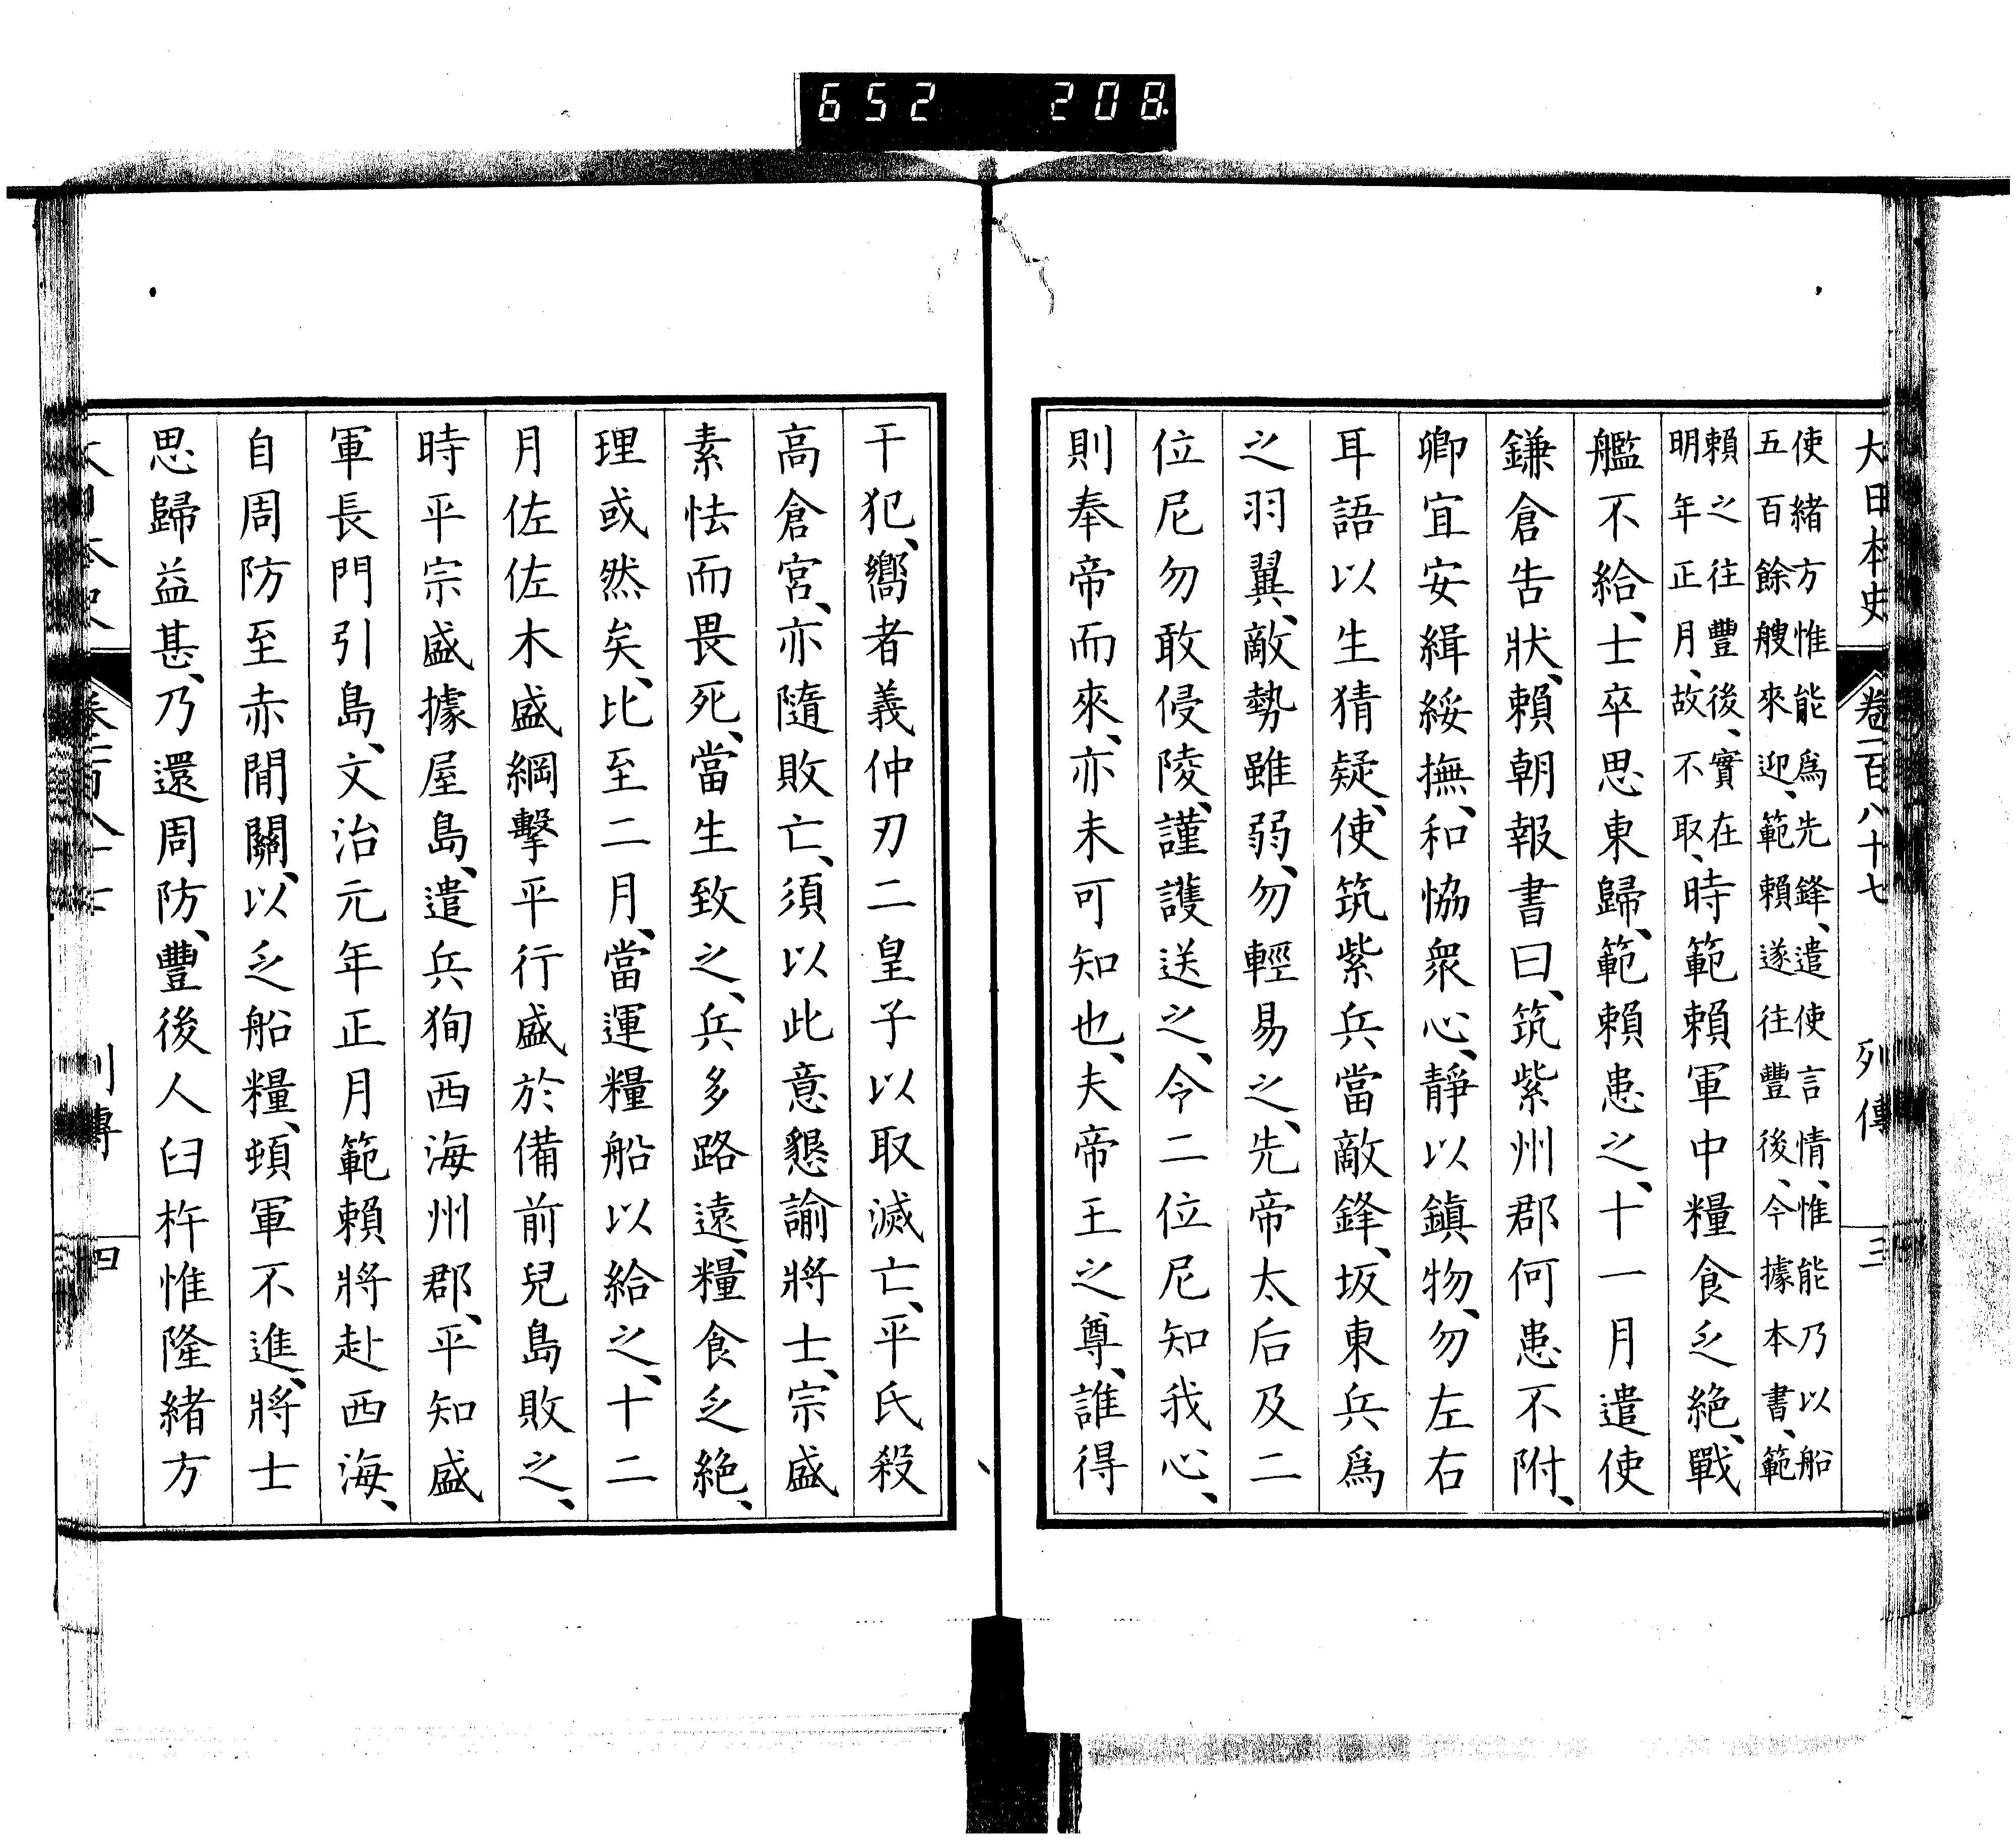 652 208
大日本史 卷一百八十七 列傳 三
使緒方惟能爲先鋒、遣使言情、惟能乃以船
五百餘艘來迎、範賴遂往豐後、今據本書、範
賴之往豐後、實在
明年正月、故不取、時範賴軍中糧食乏絶、戰
艦不給、士卒思東歸、範賴患之、十一月遣使
鎌倉告狀、賴朝報書曰、筑紫州郡何患不附、
卿宜安緝綏撫、和恊衆心、靜以鎭物、勿左右
耳語以生猜疑、使筑紫兵當敵鋒、坂東兵爲
之羽翼、敵勢雖弱、勿輕易之、先帝太后及二
位尼勿敢侵陵、謹護送之、令二位尼知我心、
則奉帝而來、亦未可知也、夫帝王之尊、誰得
干犯、嚮者義仲刃二皇子以取滅亡、平氏殺
高倉宮、亦隨敗亡、須以此意懇諭將士、宗盛
素怯而畏死、當生致之、兵多路遠、糧食乏絶、
理或然矣、比至二月、當運糧船以給之、十二
月佐佐木盛綱擊平行盛於備前兒島敗之、
時平宗盛據屋島、遣兵狥西海州郡、平知盛
軍長門引島、文治元年正月範賴將赴西海、
自周防至赤間關、以乏船糧、頓軍不進、將士
思歸益甚、乃還周防、豐後人臼杵惟隆緒方
四